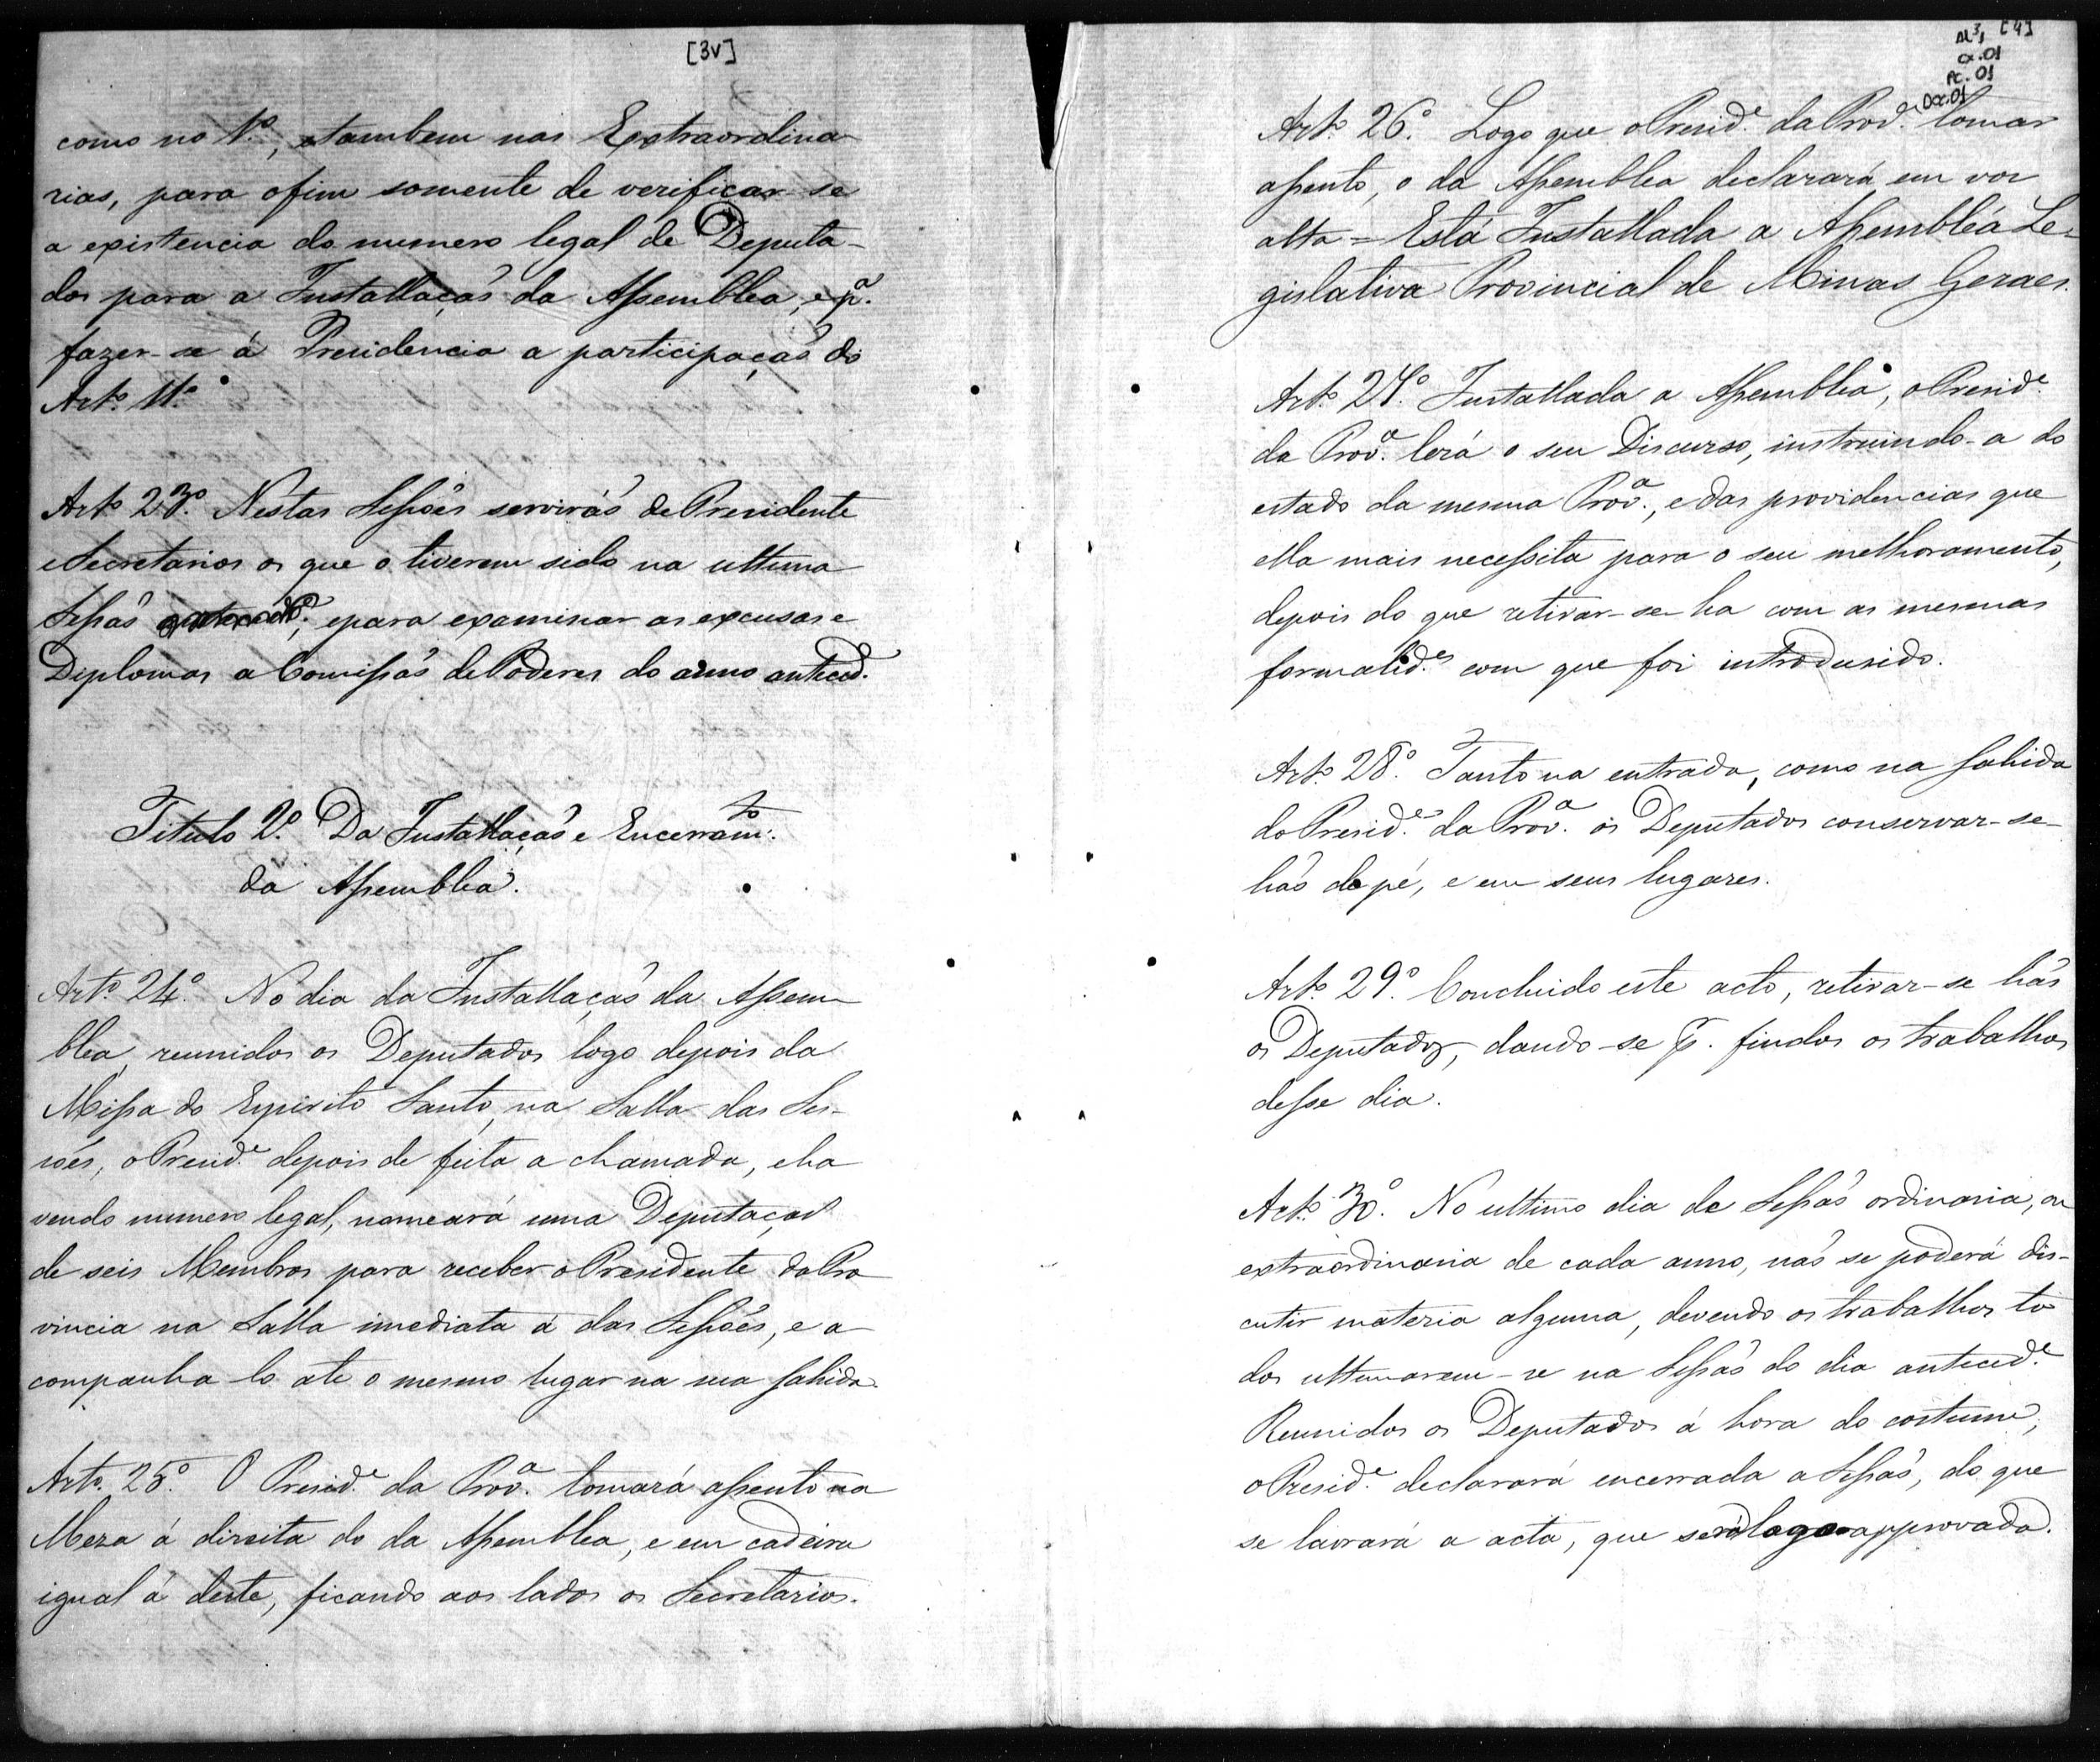 [3v]
como no 1º, e tambem nas Extraordina
rias, para o fim somente de verificar-se
a existencia do numero legal de Deputa-
dos para a Installação da Assemblea, e pª.
fazer-se á Presidencia a participação do
Artº. 11º.
Artº 23º. Nestas Sessões servirão de Presidente
e Secretarios os que o tiverem sido na ultima
Sessão antecede., e para examinar as excusas e
Diplomas a Comissão de Poderes do anno anteced.
Titulo 2º. Da Installação e Encerramto.
da Assemblea.
Artº. 24º. No dia da Installação da Assem-
blea, reunidos os Deputados logo depois da
Missa do Espirito Santo, na Salla das Ses-
sões, o Preside. depois de feita a chamada, e ha
vendo numero legal, nomeará uma Deputação
de seis Membros para receber o Presidente da Pro
vincia na Salla imediata á das Sessões, e a
companha lo até o mesmo lugar na sua sahida.
Artº. 25º. O Preside. da Provª. tomará assento na
Meza á direita do da Assemblea, e em cadeira
igual á deste, ficando aos lados os Secretarios.
[4]
AL³,
cx.01
Pc.01
Doc.01
Artº. 26º. Logo que o Preside. da Prova. tomar
assento, o da Assemblea declarará em voz
alta = Está Installada a Assembléa Le-
gislativa Provincial de Minas Geraes.
Artº. 27º. Installada a Assemblea, o Preside.
da Provª. lerá o seu Discurso, instruindo-a do
estado da mesma Provª., e das providencias que
ella mais necessita para o seu melhoramento,
depois do que retirar-se-ha com as mesmas
formalides. com que foi introdusido.
Artº. 28º. Tanto na entrada, como na sahida
do Preside. da Provª. os Deputados conservar-se-
hão de pé, e em seus lugares.
Artº. 29º. Concluido este acto, retirar-se hão
os Deputados, dando-se p. findos os trabalhos
desse dia.
Artº. 30º. No ultimo dia de Sessão ordinaria, ou
extraordinaria de cada anno, não se poderá dis-
cutir materia alguma, devendo os trabalhos to
dos ultimarem-se na Sessão do dia antecede.
Reunidos os Deputados á hora do costume,
o Preside. declarará encerrada a Sessão, do que
se lavrará a acta, que será logo approvada.